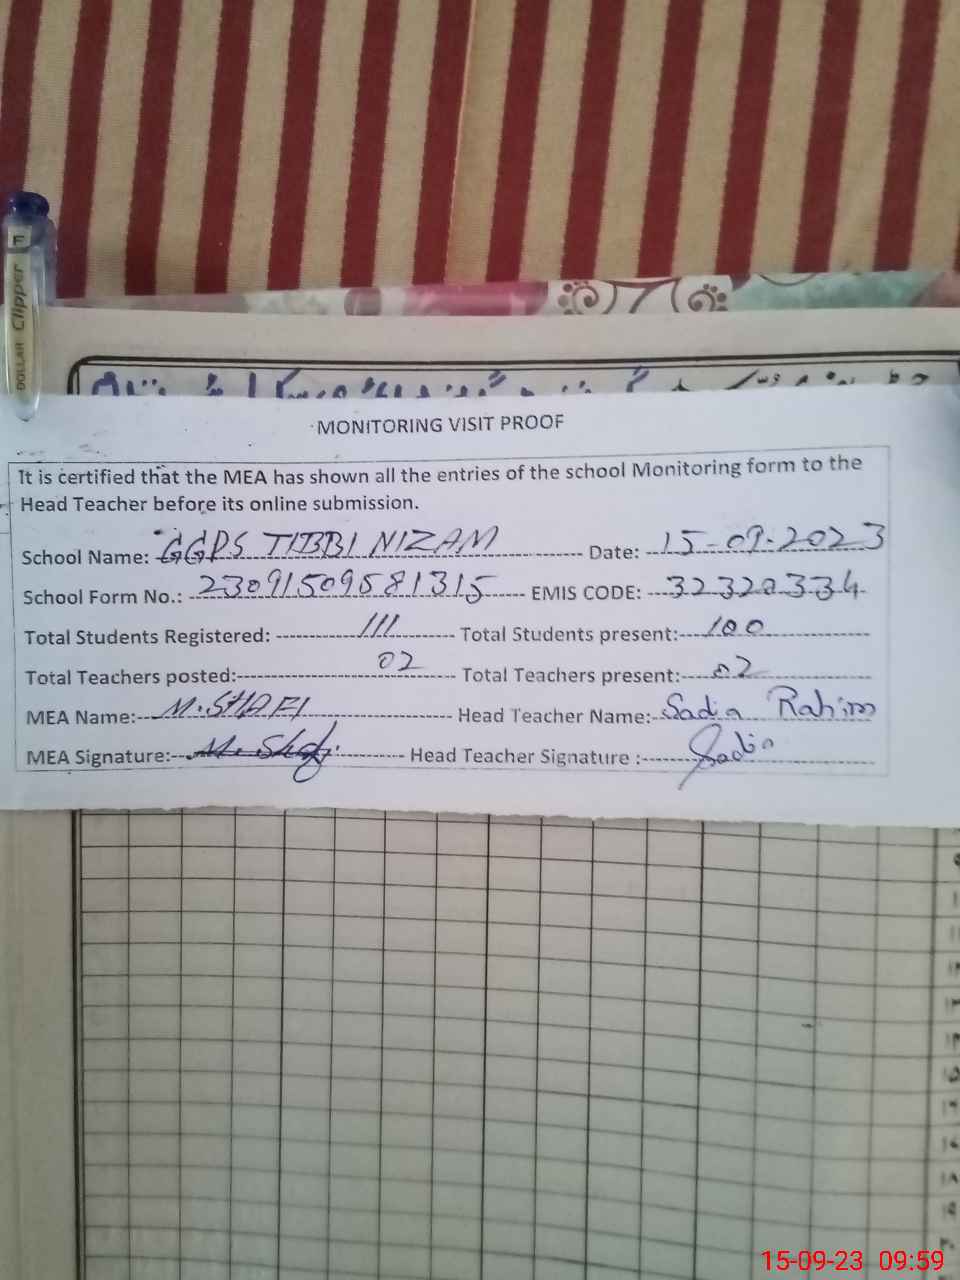 F
DOLLAR Clipper
MONITORING VISIT PROOF
It is certified that the MEA has shown all the entries of the school Monitoring form to the
Head Teacher before its online submission.
School Name: GGPS TIBBI NIZAM Date: 15-09-2023
School Form No.: 23091509581315 EMIS CODE: 32320334
Total Students Registered: 111 Total Students present: 100
Total Teachers posted: 02 Total Teachers present: 02
MEA Name: M.SHAFI Head Teacher Name: Sadia Rahim
MEA Signature: M. Shafi Head Teacher Signature : Sadia
15-09-23 09:59